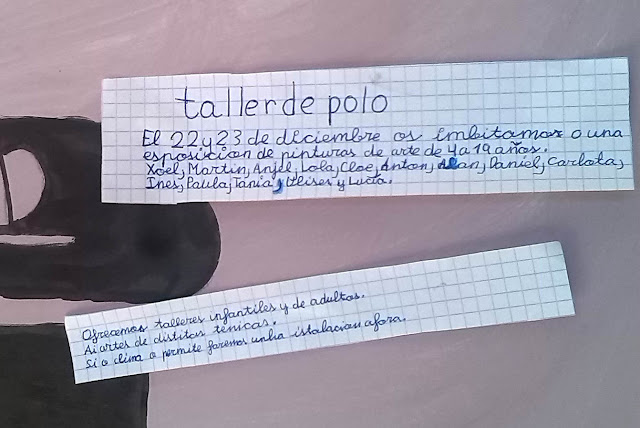 taller de polo
El 22 y 23 de diciembre os imbitamos o una
esposixion de pinturas de arte de 4 a 19 años.
Xoel, Martin, Anjel, Lola, Cloe, Anton, Alan, Daniel, Carlota,
Ines, Paula, Tania, Ulises y Lucia.
Ofrecemos talleres infantiles y de adultos.
Ai artes de distitas tenicas.
Si o clima o permite faremos unha istalacion afora.